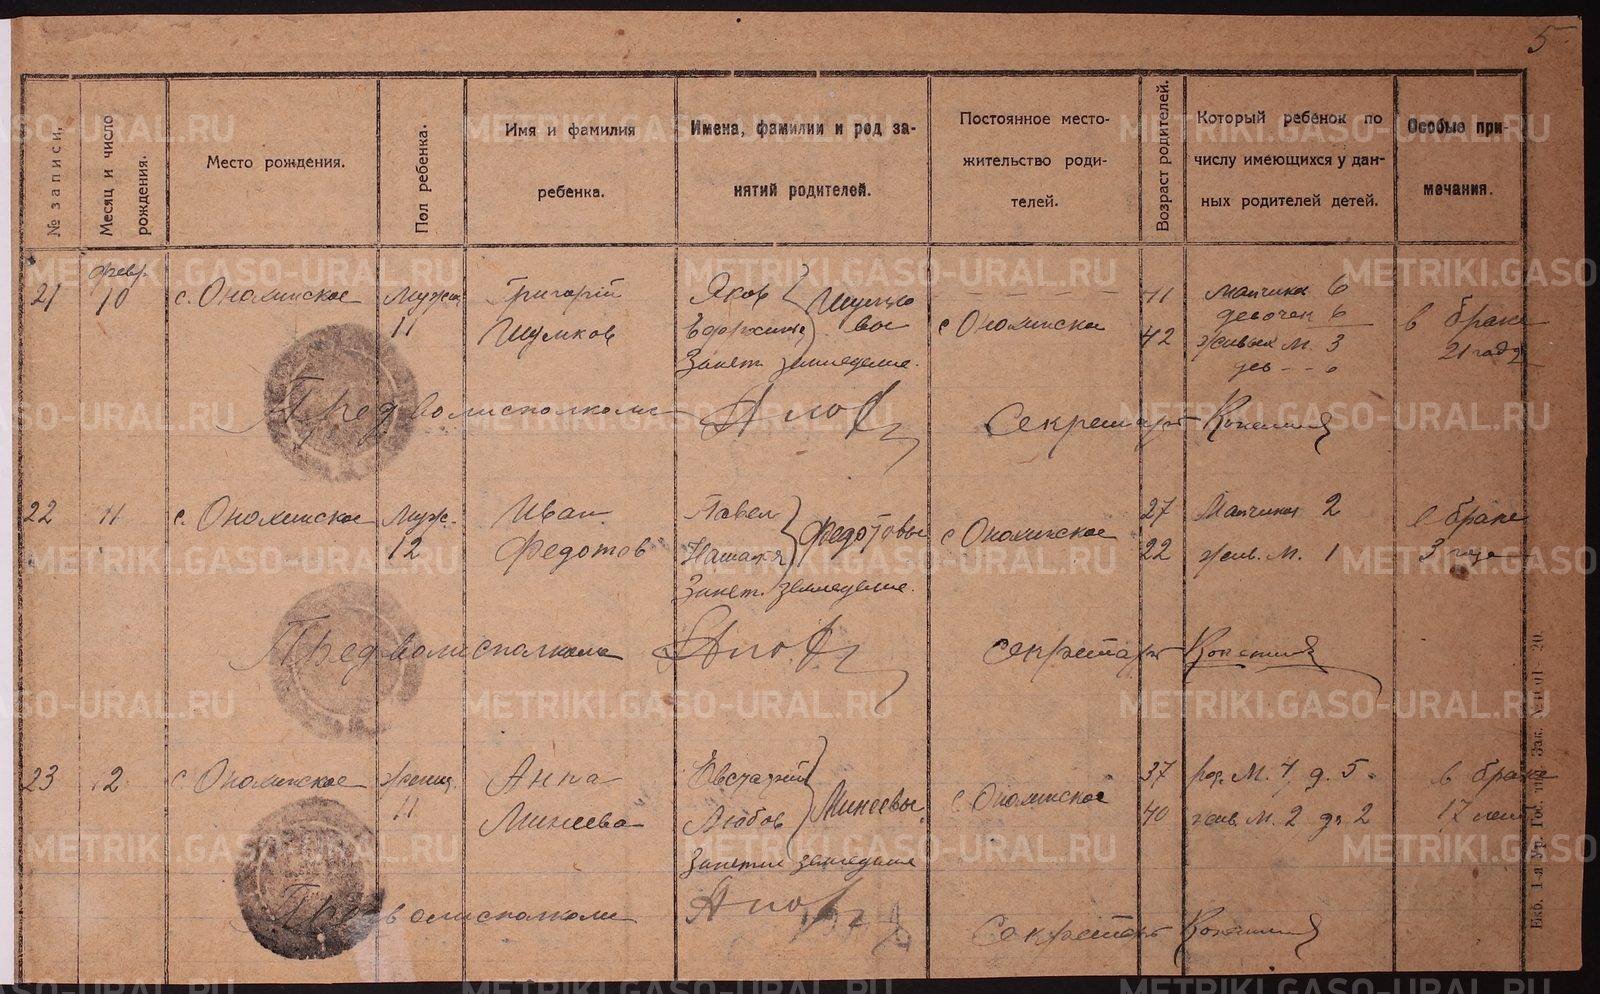 5
№ записи.
Месяц и число рождения.
Место рождения.
Пол ребенка.
Имя и фамилия
ребенка.
Имена, фамилии и род за-
нятий родителей.
Постоянное место-
жительство роди-
телей.
Возраст родителей.
Который ребенок по
числу имеющихся у дан-
ных родителей детей.
Особые при-
мечания.
февр.
21 10 с. Ономинское 11 Григорій Шумков
Яков
Занят. земледелие.
с Ономинско
42
мальчика 6
девочек 6
живых м. 3
в браке
21 год
Пред волисполкома
Секретарь
22 11 с. Ономинское муж. 12 Иван Федотов
Павел
Федотовы
Занят. земледелие.
с Ономинское
27
22
Мальчика 2
жив. м. 1
в браке
3 года
Предволисполкома
секретарь
23 12 с Ономинское 11 Анна Минеева
Любов
Минеевы
Занятие земледелие
с. Ономинское
37
40
род. м. 7, д. 5.
жив. м. 2 д. 2
в браке
17 лет
Пред волисполкома
Секретарь
METRIKI.GASO-URAL.RU